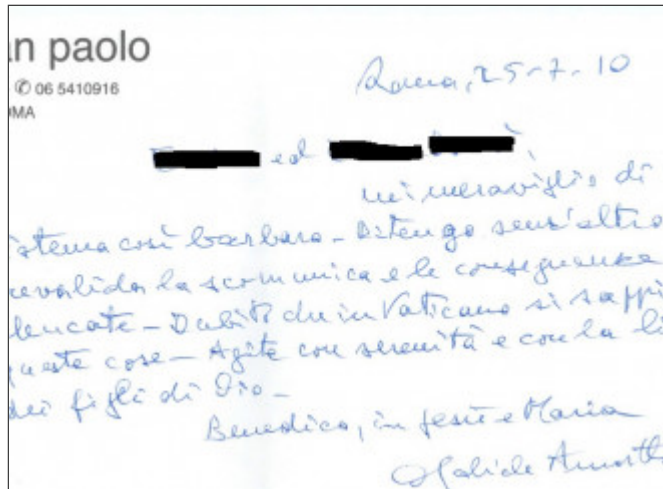 n paolo
✆ 06 5410916
OMA
Roma, 25-7-10
ed
mi meraviglio di
istema così barbaro - Ritengo senz'altro
valida la scomunica e le conseguenze
lencate - Dubito che in Vaticano si sappi
queste cose - Agite con serenità e con la li
dei figli di Dio -
Benedico, in Gesù e Maria
Gabriele Amorth